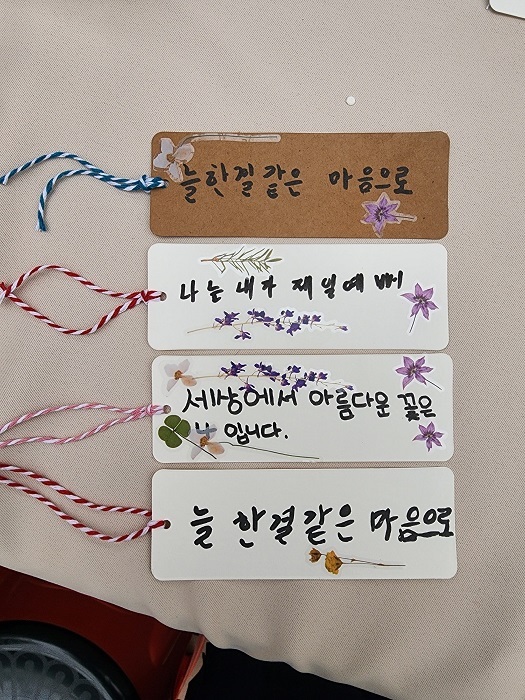 늘 한결같은 마음으로
나는 내가 제일 예뻐
세상에서 아름다운 꽃은
입니다.
늘 한결같은 마음으로